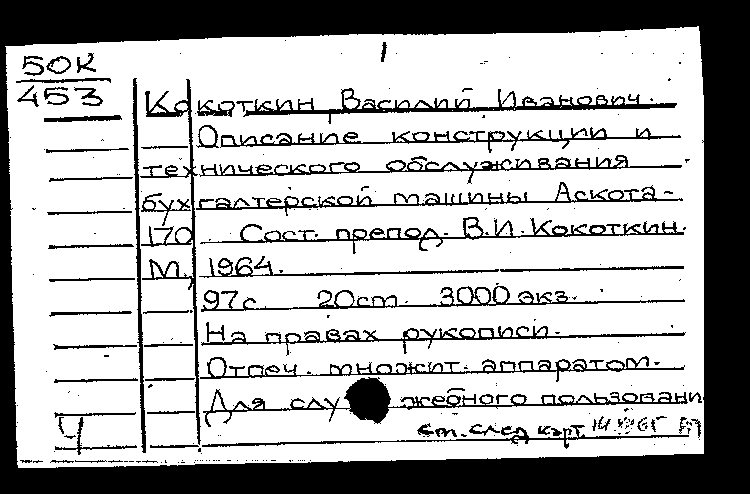 1
50К
453
Кокоткин, Василий Иванович.
Описание конструкции и
технического обслуживания
бухгалтерской машины Аскота-
170 Сост. препод. В.И. Кокоткин.
М., 1964.
97с. 20см. 3000 экз.
На правах рукописи.
Отпеч. множит. аппаратом.
Для служебного пользовани
Ч см. след карт.